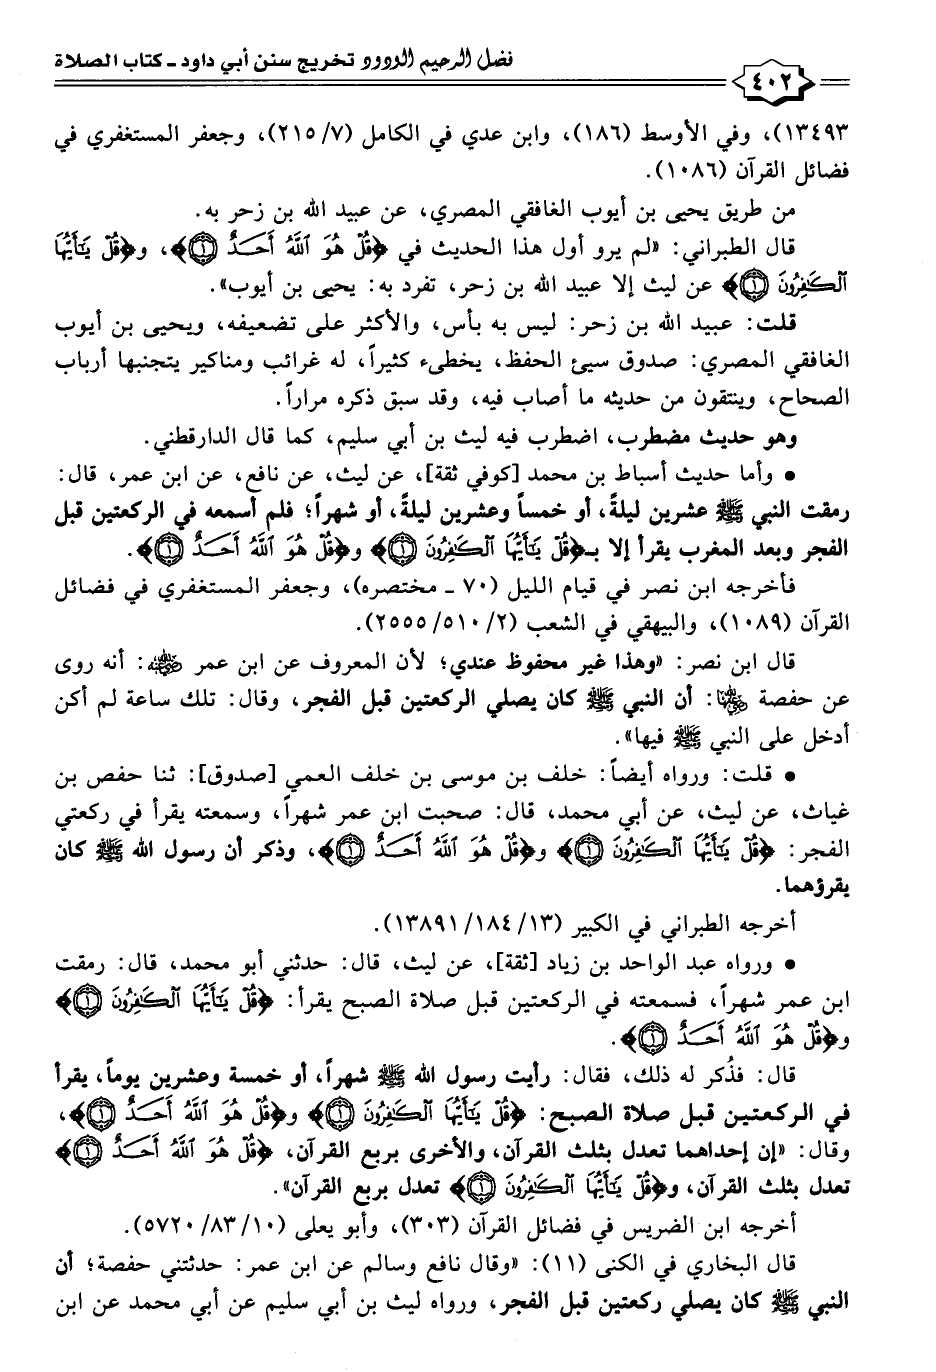 فضل الرحيم الودود تخريج سنن أبي داود - كتاب الصلاة
٤٠٢
١٣٤٩٣)، وفي الأوسط (١٨٦)، وابن عدي في الكامل (٢١٥/٧)، وجعفر المستغفري في
فضائل القرآن (١٠٨٦).
من طريق يحيى بن أيوب الغافقي المصري، عن عبيد الله بن زحر به.
قال الطبراني: «لم يرو أول هذا الحديث في ﴿قُلْ هُوَ ٱللَّهُ أَحَدٌ ۝١﴾، و﴿قُلْ يَٰٓأَيُّهَا
ٱلْكَٰفِرُونَ ۝١﴾ عن ليث إلا عبيد الله بن زحر، تفرد به: يحيى بن أيوب».
قلت: عبيد الله بن زحر: ليس به بأس، والأكثر على تضعيفه، ويحيى بن أيوب
الغافقي المصري: صدوق سيئ الحفظ، يخطىء كثيراً، له غرائب ومناكير يتجنبها أرباب
الصحاح، وينتقون من حديثه ما أصاب فيه، وقد سبق ذكره مراراً.
وهو حديث مضطرب، اضطرب فيه ليث بن أبي سليم، كما قال الدارقطني.
• وأما حديث أسباط بن محمد [كوفي ثقة]، عن ليث، عن نافع، عن ابن عمر، قال:
رمقت النبي ﷺ عشرين ليلةً، أو خمساً وعشرين ليلةً، أو شهراً؛ فلم أسمعه في الركعتين قبل
الفجر وبعد المغرب يقرأ إلا بـ﴿قُلْ يَٰٓأَيُّهَا ٱلْكَٰفِرُونَ ۝١﴾ و﴿قُلْ هُوَ ٱللَّهُ أَحَدٌ ۝١﴾.
فأخرجه ابن نصر في قيام الليل (٧٠ - مختصره)، وجعفر المستغفري في فضائل
القرآن (١٠٨٩)، والبيهقي في الشعب (٢/٥١٠/٢٥٥٥).
قال ابن نصر: «وهذا غير محفوظ عندي؛ لأن المعروف عن ابن عمر رضي الله عنهما: أنه روى
عن حفصة رضي الله عنها: أن النبي ﷺ كان يصلي الركعتين قبل الفجر، وقال: تلك ساعة لم أكن
أدخل على النبي ﷺ فيها».
• قلت: ورواه أيضاً: خلف بن موسى بن خلف العمي [صدوق]: ثنا حفص بن
غياث، عن ليث، عن أبي محمد، قال: صحبت ابن عمر شهراً، وسمعته يقرأ في ركعتي
الفجر: ﴿قُلْ يَٰٓأَيُّهَا ٱلْكَٰفِرُونَ ۝١﴾ و﴿قُلْ هُوَ ٱللَّهُ أَحَدٌ ۝١﴾، وذكر أن رسول الله ﷺ كان
يقرؤهما.
أخرجه الطبراني في الكبير (١٣/١٨٤/١٣٨٩١).
• ورواه عبد الواحد بن زياد [ثقة]، عن ليث، قال: حدثني أبو محمد، قال: رمقت
ابن عمر شهراً، فسمعته في الركعتين قبل صلاة الصبح يقرأ: ﴿قُلْ يَٰٓأَيُّهَا ٱلْكَٰفِرُونَ ۝١﴾
و﴿قُلْ هُوَ ٱللَّهُ أَحَدٌ ۝١﴾.
قال: فذُكر له ذلك، فقال: رأيت رسول الله ﷺ شهراً، أو خمسة وعشرين يوماً، يقرأ
في الركعتين قبل صلاة الصبح: ﴿قُلْ يَٰٓأَيُّهَا ٱلْكَٰفِرُونَ ۝١﴾ و﴿قُلْ هُوَ ٱللَّهُ أَحَدٌ ۝١﴾،
وقال: «إن إحداهما تعدل بثلث القرآن، والأخرى بربع القرآن، ﴿قُلْ هُوَ ٱللَّهُ أَحَدٌ ۝١﴾
تعدل بثلث القرآن، و﴿قُلْ يَٰٓأَيُّهَا ٱلْكَٰفِرُونَ ۝١﴾ تعدل بربع القرآن».
أخرجه ابن الضريس في فضائل القرآن (٣٠٣)، وأبو يعلى (١٠/٨٣/٥٧٢٠).
قال البخاري في الكنى (١١): «وقال نافع وسالم عن ابن عمر: حدثتني حفصة؛ أن
النبي ﷺ كان يصلي ركعتين قبل الفجر، ورواه ليث بن أبي سليم عن أبي محمد عن ابن